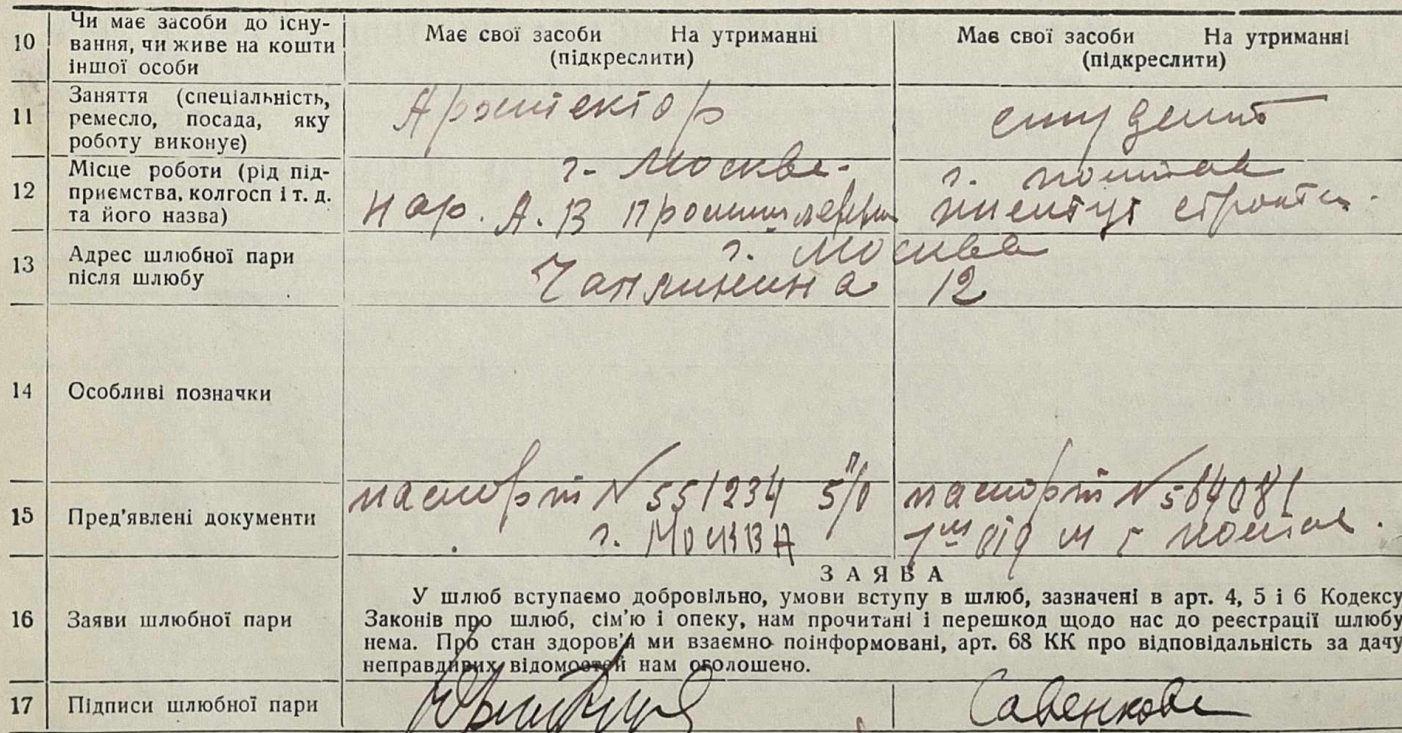 10 Чи має засоби до існу-
вання, чи живе на кошти
іншої особи
Має свої засоби На утриманні
(підкреслити)
Має свої засоби На утриманні
(підкреслити)
11 Заняття (спеціальність,
ремесло, посада, яку
роботу виконує)
Архитектор
студент
12 Місце роботи (рід під-
приємства, колгосп і т. д.
та його назва)
г. Москва
Нар.
г.
13 Адрес шлюбної пари
після шлюбу
г. Москва
Чаплинина 12
14 Особливі позначки
15 Пред'явлені документи
паспорт № 551234 5 п/о
г. Москва
паспорт № 564081
16 Заяви шлюбної пари
ЗАЯВА
У шлюб вступаємо добровільно, умови вступу в шлюб, зазначені в арт. 4, 5 і 6 Кодексу
Законів про шлюб, сім'ю і опеку, нам прочитані і перешкод щодо нас до реєстрації шлюбу
нема. Про стан здоров'я ми взаємно поінформовані, арт. 68 КК про відповідальність за дачу
неправдивих відомостей нам оголошено.
17 Підписи шлюбної пари
Савенкова